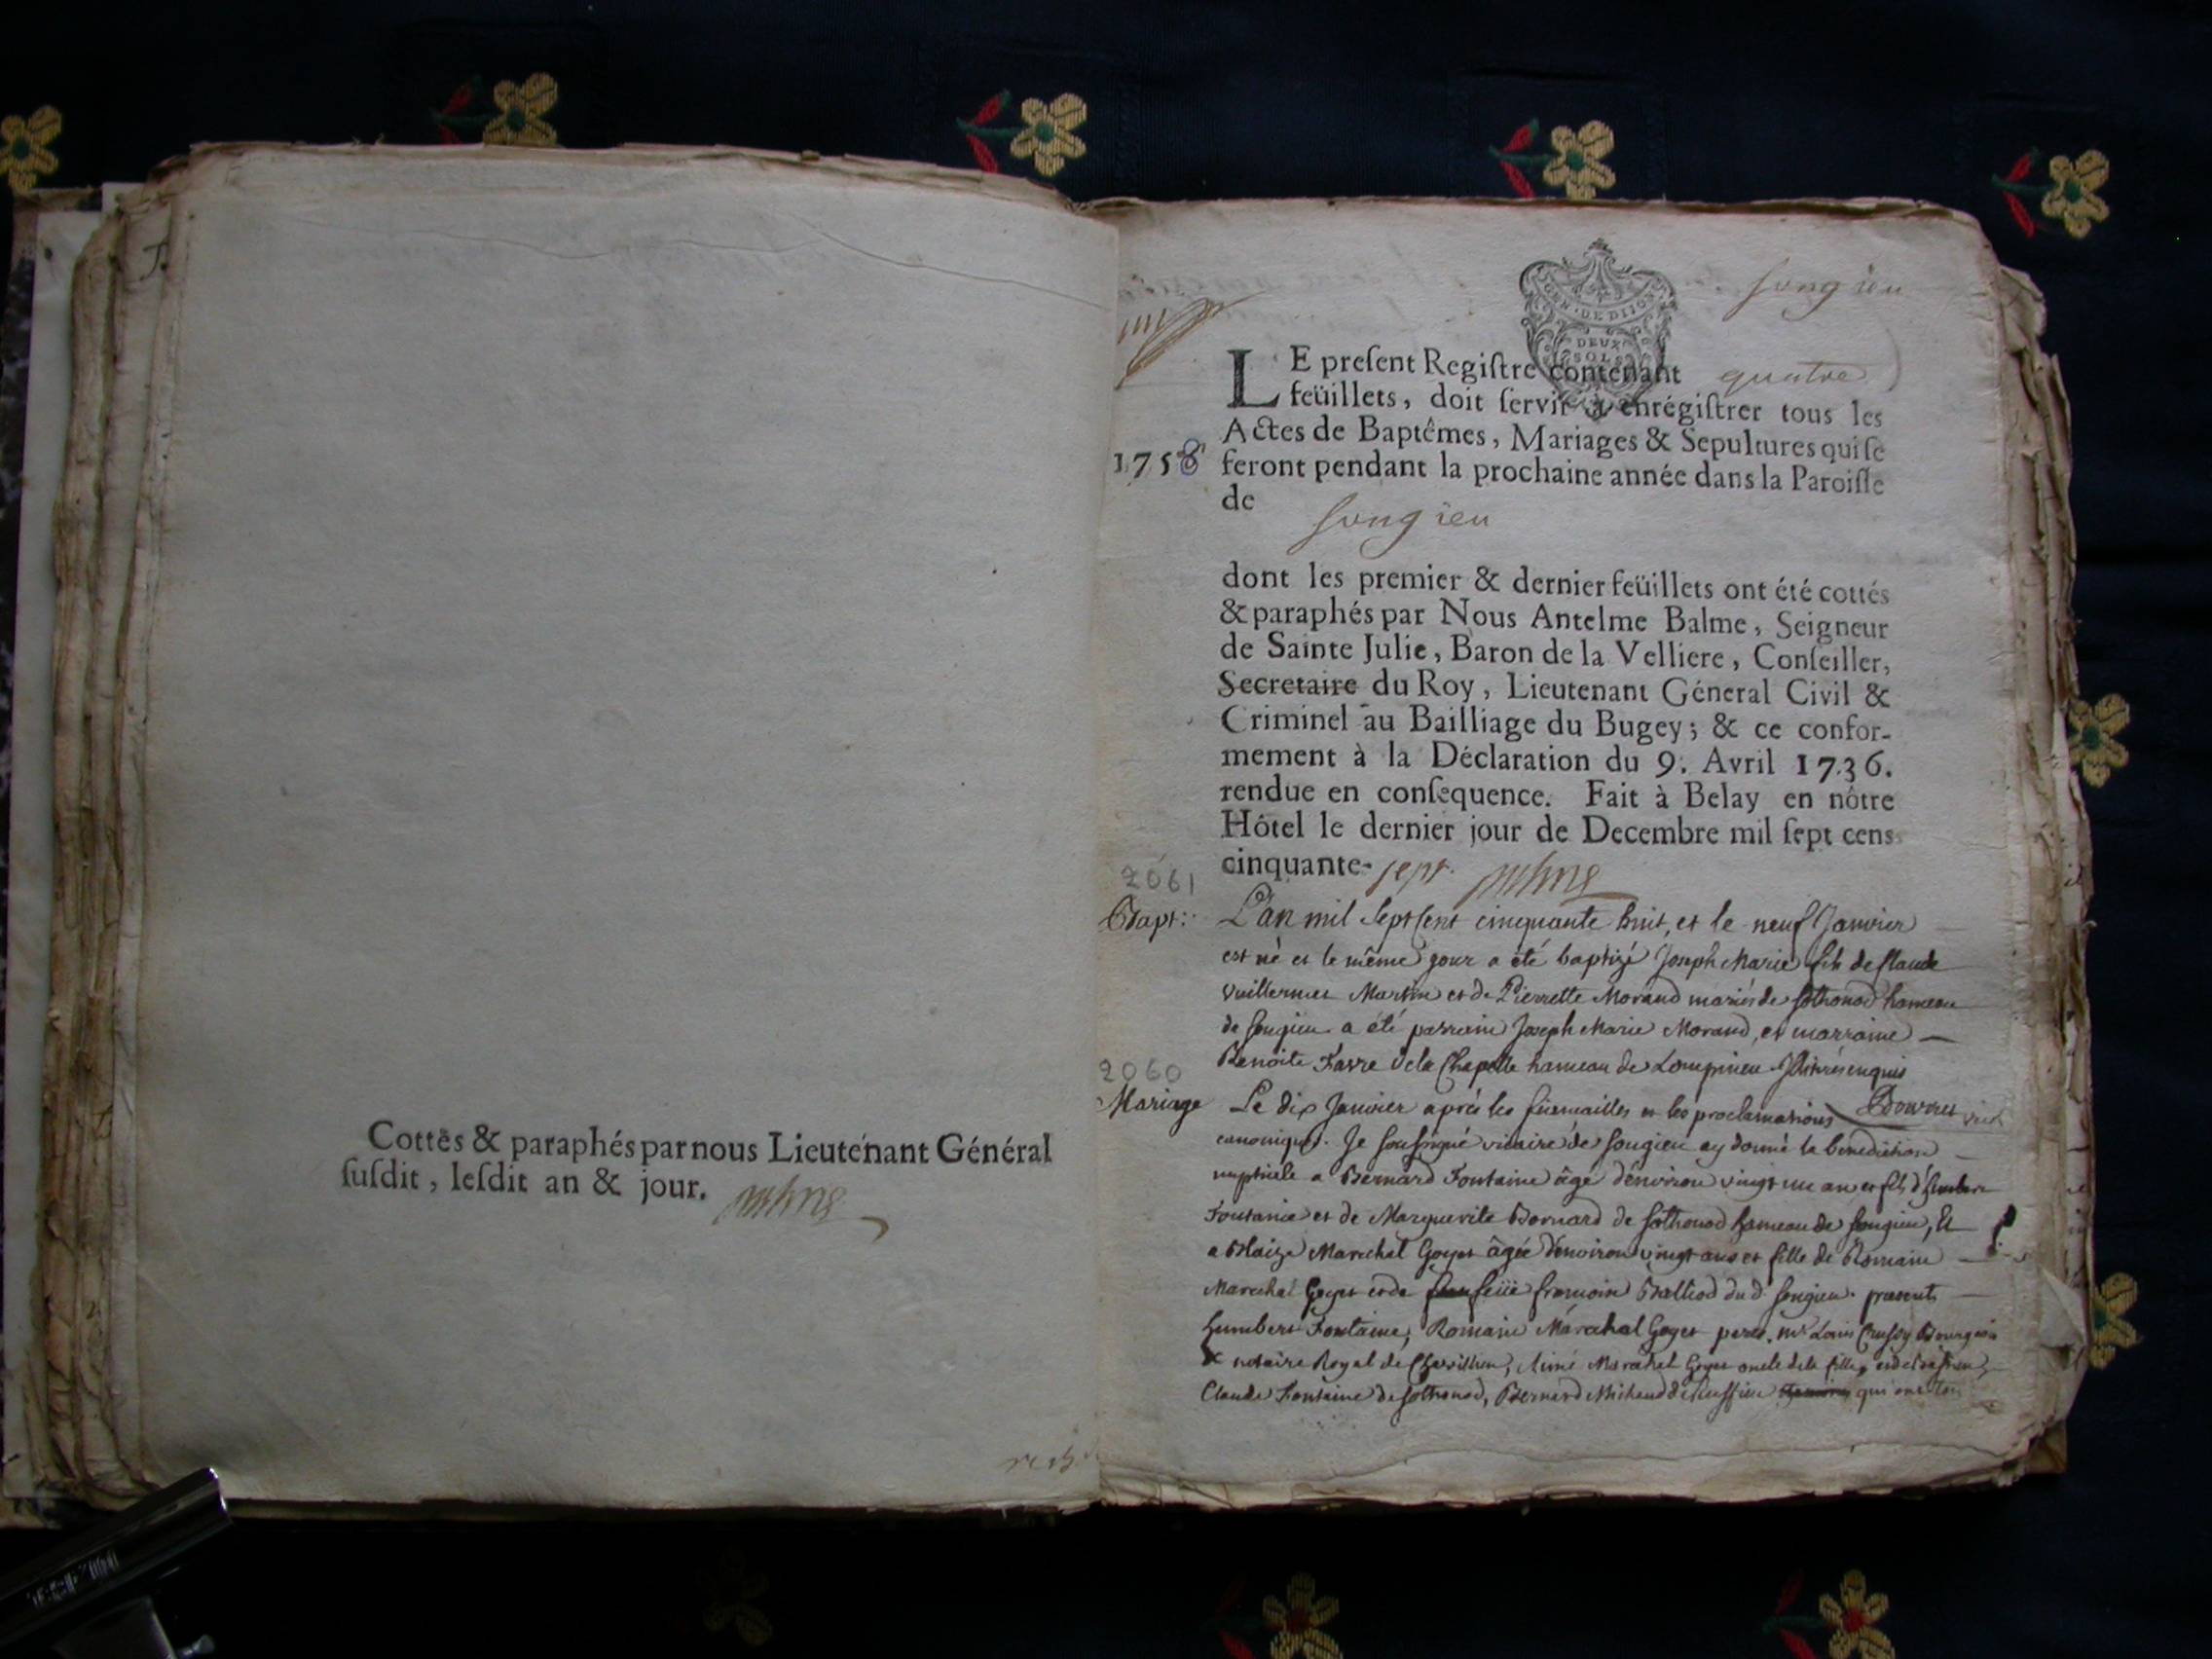 Cottés & paraphés par nous Lieutenant Général
ſuſdit, leſdit an & jour.
Songieu
GEN. DE DIJON
DEUX
SOLS
LE preſent Regiſtre contenant quatre
feüillets, doit ſervir à enrégiſtrer tous les
Actes de Baptêmes, Mariages & Sepultures qui ſe
1758 feront pendant la prochaine année dans la Paroiſſe
de
Songieu
dont les premier & dernier feüillets ont été cottés
& paraphés par Nous Antelme Balme, Seigneur
de Sainte Julie, Baron de la Velliere, Conſeiller,
Secretaire du Roy, Lieutenant Géneral Civil &
Criminel au Bailliage du Bugey; & ce confor-
mement à la Déclaration du 9. Avril 1736.
rendue en conſequence. Fait à Belay en nôtre
Hôtel le dernier jour de Decembre mil ſept cens
cinquante-sept.
2061
Bapt: L'an mil Sept Cent cinquante huit, et le neuf Janvier
est né et le même jour a été baptizé Joseph Marie fils de Claude
Vuillermet Martin et de Pierrette Morand mariés de Sothonod hameau
de Songieu a été parrain Joseph Marie Morand, et marraine
Benoite Favre de la Chapelle hameau de Lompnieu
2060
Mariage Le dix Janvier après les fiançailles et les proclamations
canoniques. Je Soussigné vicaire de Songieu ay donné la benediction
nuptiale a Bernard Fontaine âgé d'environ vingt un an et fils d'humbert
Fontaine et de Marguerite Bornard de Sothonod hameau de Songieu, Et
a Blaize Marechal Goyet âgée d'environ vingt ans et fille de Romain
Marechal Goyet et de feüe françoise Balliod dud Songieu. presents
humbert Fontaine, Romain Maréchal Goyet peres, mr Louis Bourgeois
& notaire Royal de, Aimé Marechal Goyet oncle de la fille,
Claude Fontaine de Sothonod, Bernard Michaud de Ruffieu qui ont